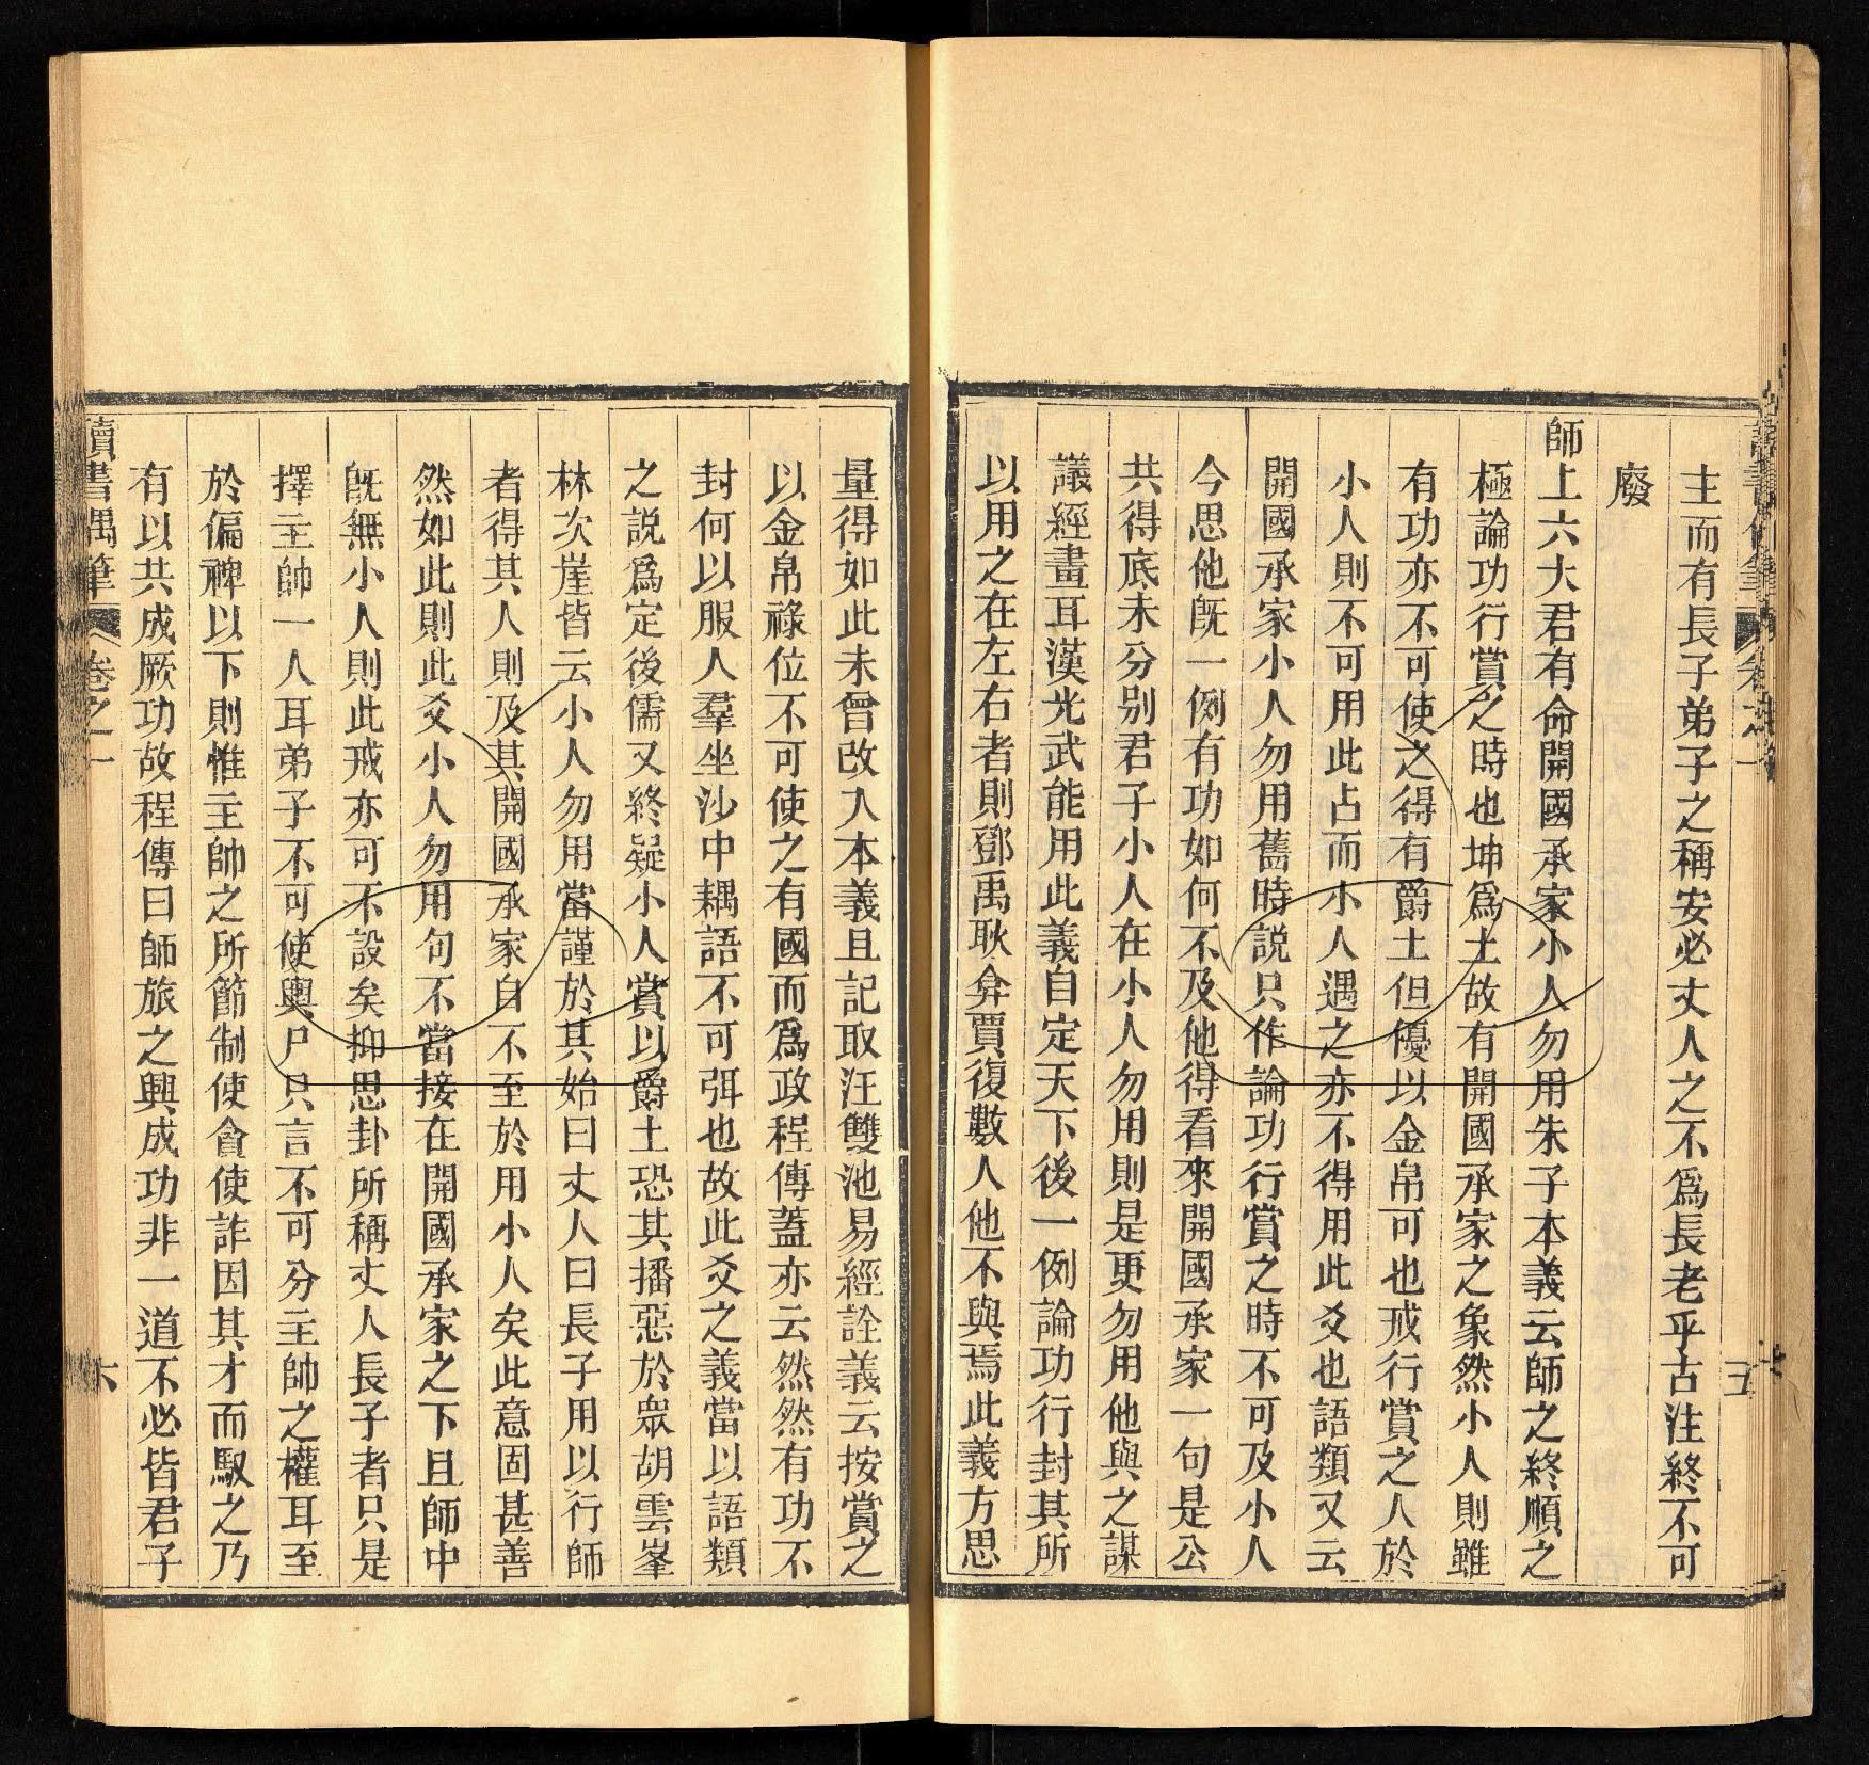 主而有長子弟子之稱安必丈人之不爲長老乎古注終不可
廢
師上六大君有命開國承家小人勿用朱子本義云師之終順之
極論功行賞之時也坤爲土故有開國承家之象然小人則雖
有功亦不可使之得有爵土但優以金帛可也戒行賞之人於
小人則不可用此占而小人遇之亦不得用此爻也語類又云
開國承家小人勿用舊時説只作論功行賞之時不可及小人
今思他旣一例有功如何不及他得看來開國承家一句是公
共得底未分别君子小人在小人勿用則是更勿用他與之謀
議經畫耳漢光武能用此義自定天下後一例論功行封其所
以用之在左右者則鄧禹耿弇賈復數人他不與焉此義方思
量得如此未曾改入本義且記取汪雙池易經詮義云按賞之
以金帛祿位不可使之有國而爲政程傳蓋亦云然然有功不
封何以服人羣坐沙中耦語不可弭也故此爻之義當以語類
之說爲定後儒又終疑小人賞以爵土恐其播惡於眾胡雲峯
林次崖皆云小人勿用當謹於其始曰丈人曰長子用以行師
者得其人則及其開國承家自不至於用小人矣此意固甚善
然如此則此爻小人勿用句不當接在開國承家之下且師中
旣無小人則此戒亦可不設矣抑思卦所稱丈人長子者只是
擇主帥一人耳弟子不可使輿尸只言不可分主帥之權耳至
於偏裨以下則惟主帥之所節制使貪使詐因其才而馭之乃
有以共成厥功故程傳曰師旅之興成功非一道不必皆君子
讀書偶筆 卷之一 六